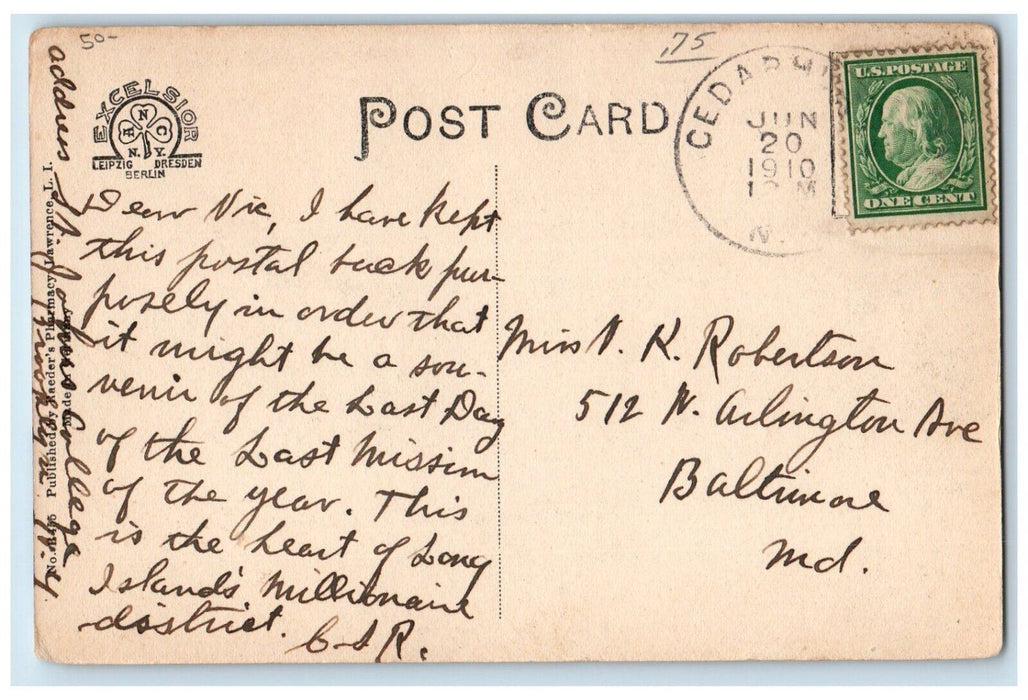 50-
.75
EXCELSIOR
ANC
N.Y.
LEIPZIG DRESDEN
BERLIN
POST CARD
CEDARHU
JUN
20
1910
M
N.
U.S. POSTAGE
ONE CENT
Dear Vic, I have kept
this postal back pur-
posely in order that
it might be a sou-
venir of the Last Day
of the Last Mission
of the year. This
is the heart of Long
Island's Millionaire
district.
C S R.
Miss V. K. Robertson
512 N. Arlington Ave
Baltimore
Md.
address St. John's College
Brooklyn N.Y.
Published by Raeder's Pharmacy, Lawrence, L. I.